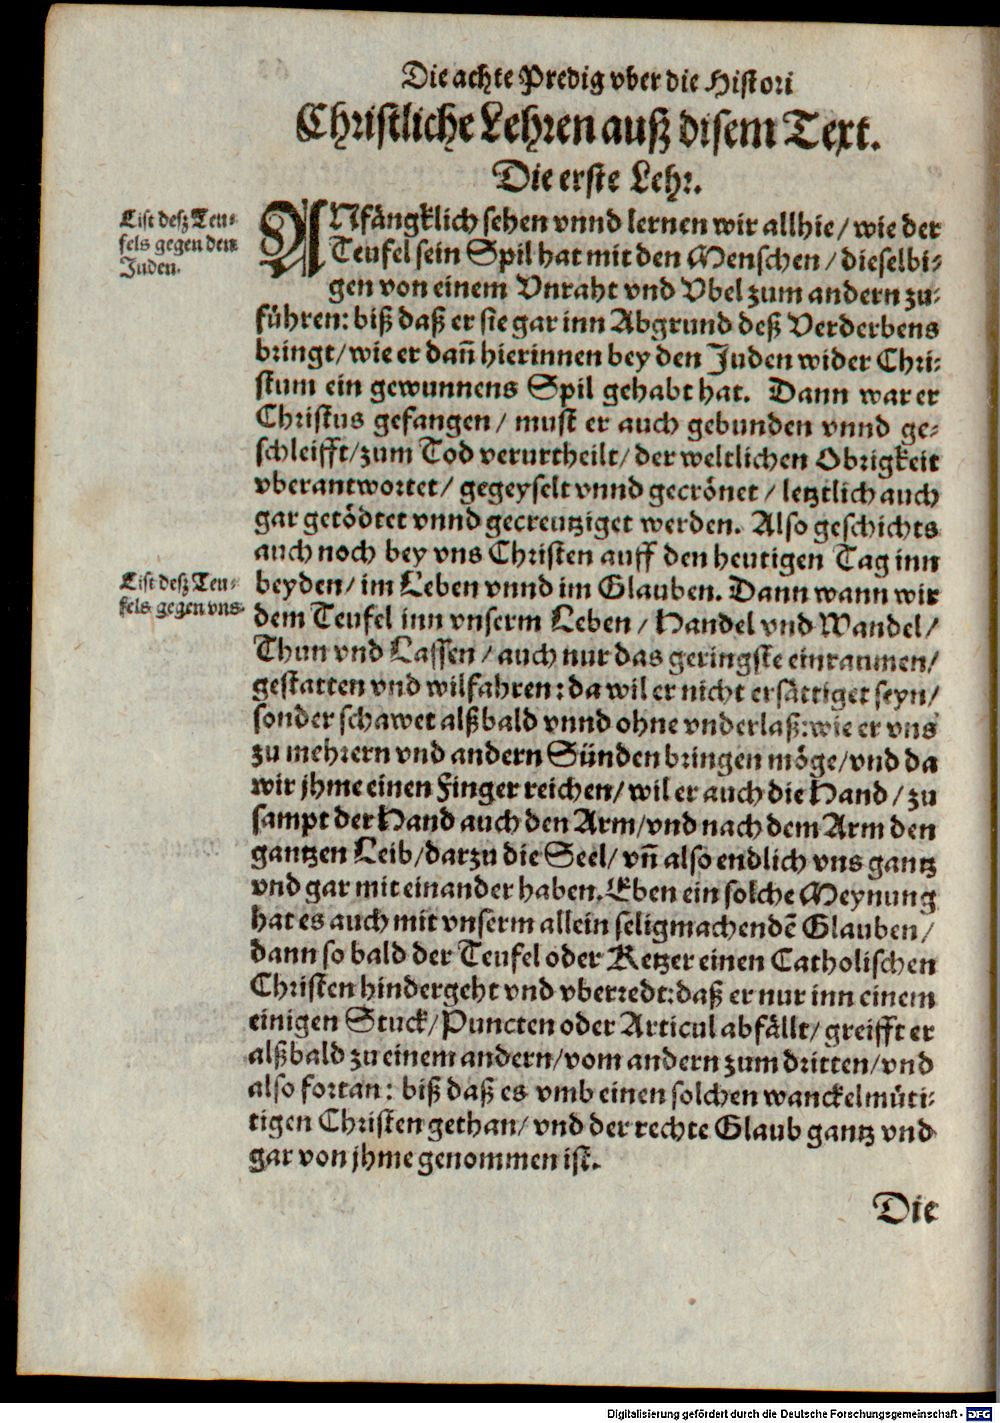 Die achte Predig vber die Histori
Christliche Lehren auß disem Text.
Die erste Lehr.
List deß Teu-
fels gegen den
Juden.
ANfängklich sehen vnnd lernen wir allhie/ wie der
Teufel sein Spil hat mit den Menschen/ dieselbi-
gen von einem Vnraht vnd Vbel zum andern zu-
führen: biß daß er sie gar inn Abgrund deß Verderbens
bringt/ wie er dañ hierinnen bey den Juden wider Chri-
stum ein gewunnens Spil gehabt hat. Dann war er
Christus gefangen/ must er auch gebunden vnnd ge-
schleifft/ zum Tod verurtheilt/ der weltlichen Obrigkeit
vberantwortet/ gegeyselt vnnd gecrönet/ letztlich auch
gar getödtet vnnd gecreutziget werden. Also geschichts
auch noch bey vns Christen auff den heutigen Tag inn
List deß Teu-
fels gegen vns.
beyden/ im Leben vnnd im Glauben. Dann wann wir
dem Teufel inn vnserm Leben/ Handel vnd Wandel/
Thun vnd Lassen/ auch nur das geringste einraumen/
gestatten vnd wilfahren: da wil er nicht ersättiget seyn/
sonder schawet alßbald vnnd ohne vnderlaß: wie er vns
zu mehrern vnd andern Sünden bringen möge/ vnd da
wir jhme einen Finger reichen/ wil er auch die Hand/ zu
sampt der Hand auch den Arm/ vnd nach dem Arm den
gantzen Leib/ darzu die Seel/ vñ also endlich vns gantz
vnd gar mit einander haben. Eben ein solche Meynung
hat es auch mit vnserm allein seligmachendẽ Glauben/
dann so bald der Teufel oder Ketzer einen Catholischen
Christen hindergeht vnd vberredt: daß er nur inn einem
einigen Stuck/ Puncten oder Articul abfällt/ greifft er
alßbald zu einem andern/ vom andern zum dritten/ vnd
also fortan: biß daß es vmb einen solchen wanckelmüti-
tigen Christen gethan/ vnd der rechte Glaub gantz vnd
gar von jhme genommen ist.
Die
Digitalisierung gefördert durch die Deutsche Forschungsgemeinschaft - DFG